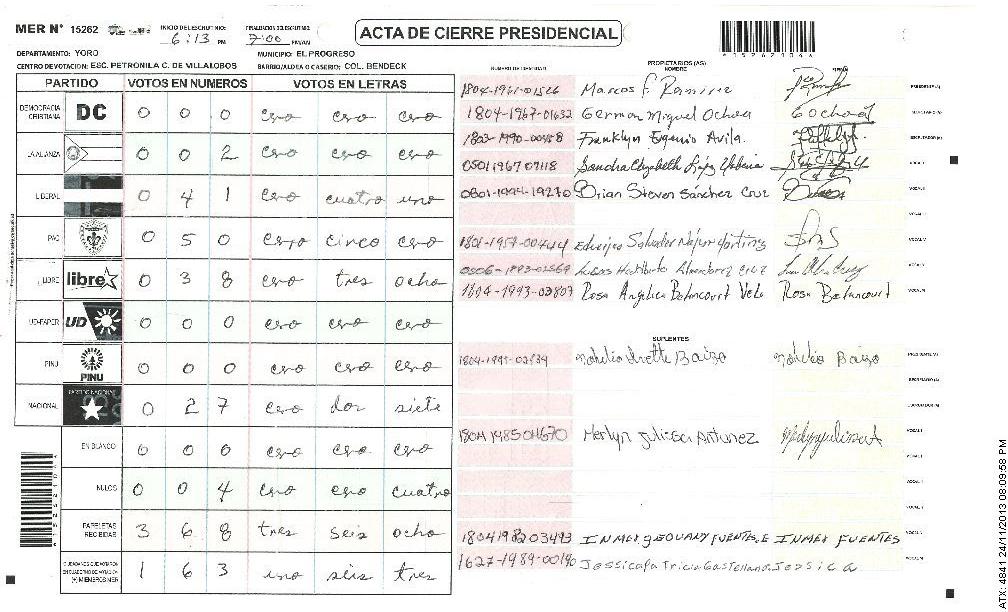 MER Nº 15262 INICIO DEL ESCRUTINIO: 6:13 PM FINALIZACION DEL ESCRUTINIO: 7:00 PM/AM
ACTA DE CIERRE PRESIDENCIAL
DEPARTAMENTO: YORO MUNICIPIO: EL PROGRESO
CENTRO DE VOTACION: ESC. PETRONILA C. DE VILLALOBOS BARRIO/ALDEA O CASERIO: COL. BENDECK
PARTIDO VOTOS EN NUMEROS VOTOS EN LETRAS
NUMERO DE IDENTIDAD PROPIETARIOS (AS) NOMBRE FIRMA
DEMOCRACIA CRISTIANA DC 0 0 0 cero cero cero
LA ALIANZA 0 0 2 cero cero cero
LIBERAL 0 4 1 cero cuatro uno
PAC 0 5 0 cero cinco cero
LIBRE libre 0 3 8 cero tres ocho
UD-FAPER UD 0 0 0 cero cero cero
PINU PINU 0 0 0 cero cero cero
NACIONAL PARTIDO NACIONAL 0 2 7 cero dos siete
EN BLANCO 0 0 0 cero cero cero
NULOS 0 0 4 cero cero cuatro
PAPELETAS RECIBIDAS 3 6 8 tres seis ocho
CIUDADANOS QUE VOTARON EN CUADERNO DE VOTACION (+) MIEMBROS MER 1 6 3 uno seis tres
1804-1961-01526 Marcos F. Ramirez PRESIDENTE (A)
1804-1967-01632 German Miguel Ochoa GOchoa SECRETARIO (A)
Franklyn Eugenio Avila. ESCRUTADOR (A)
0501196707118 Sandra Elizabeth López VOCAL I
0801-1994-19270 Brian Steven Sánchez Cruz VOCAL II
1801-1957-00444 Salvador VOCAL IV
Cruz
1804-1993-03807 Rosa Angelica Betancourt Rosa Betancourt
SUPLENTES
Ivette Baiza Baiza PRESIDENTE (A)
SECRETARIO (A)
ESCRUTADOR (A)
1804198504670 Merlyn Julissa Antunez VOCAL I
1804198203493 FUENTES INMER FUENTES
1627-1989-00196 Jessica Patricia Castellanos Jessica
ATX: 4841 24/11/2013 08:09:58 PM